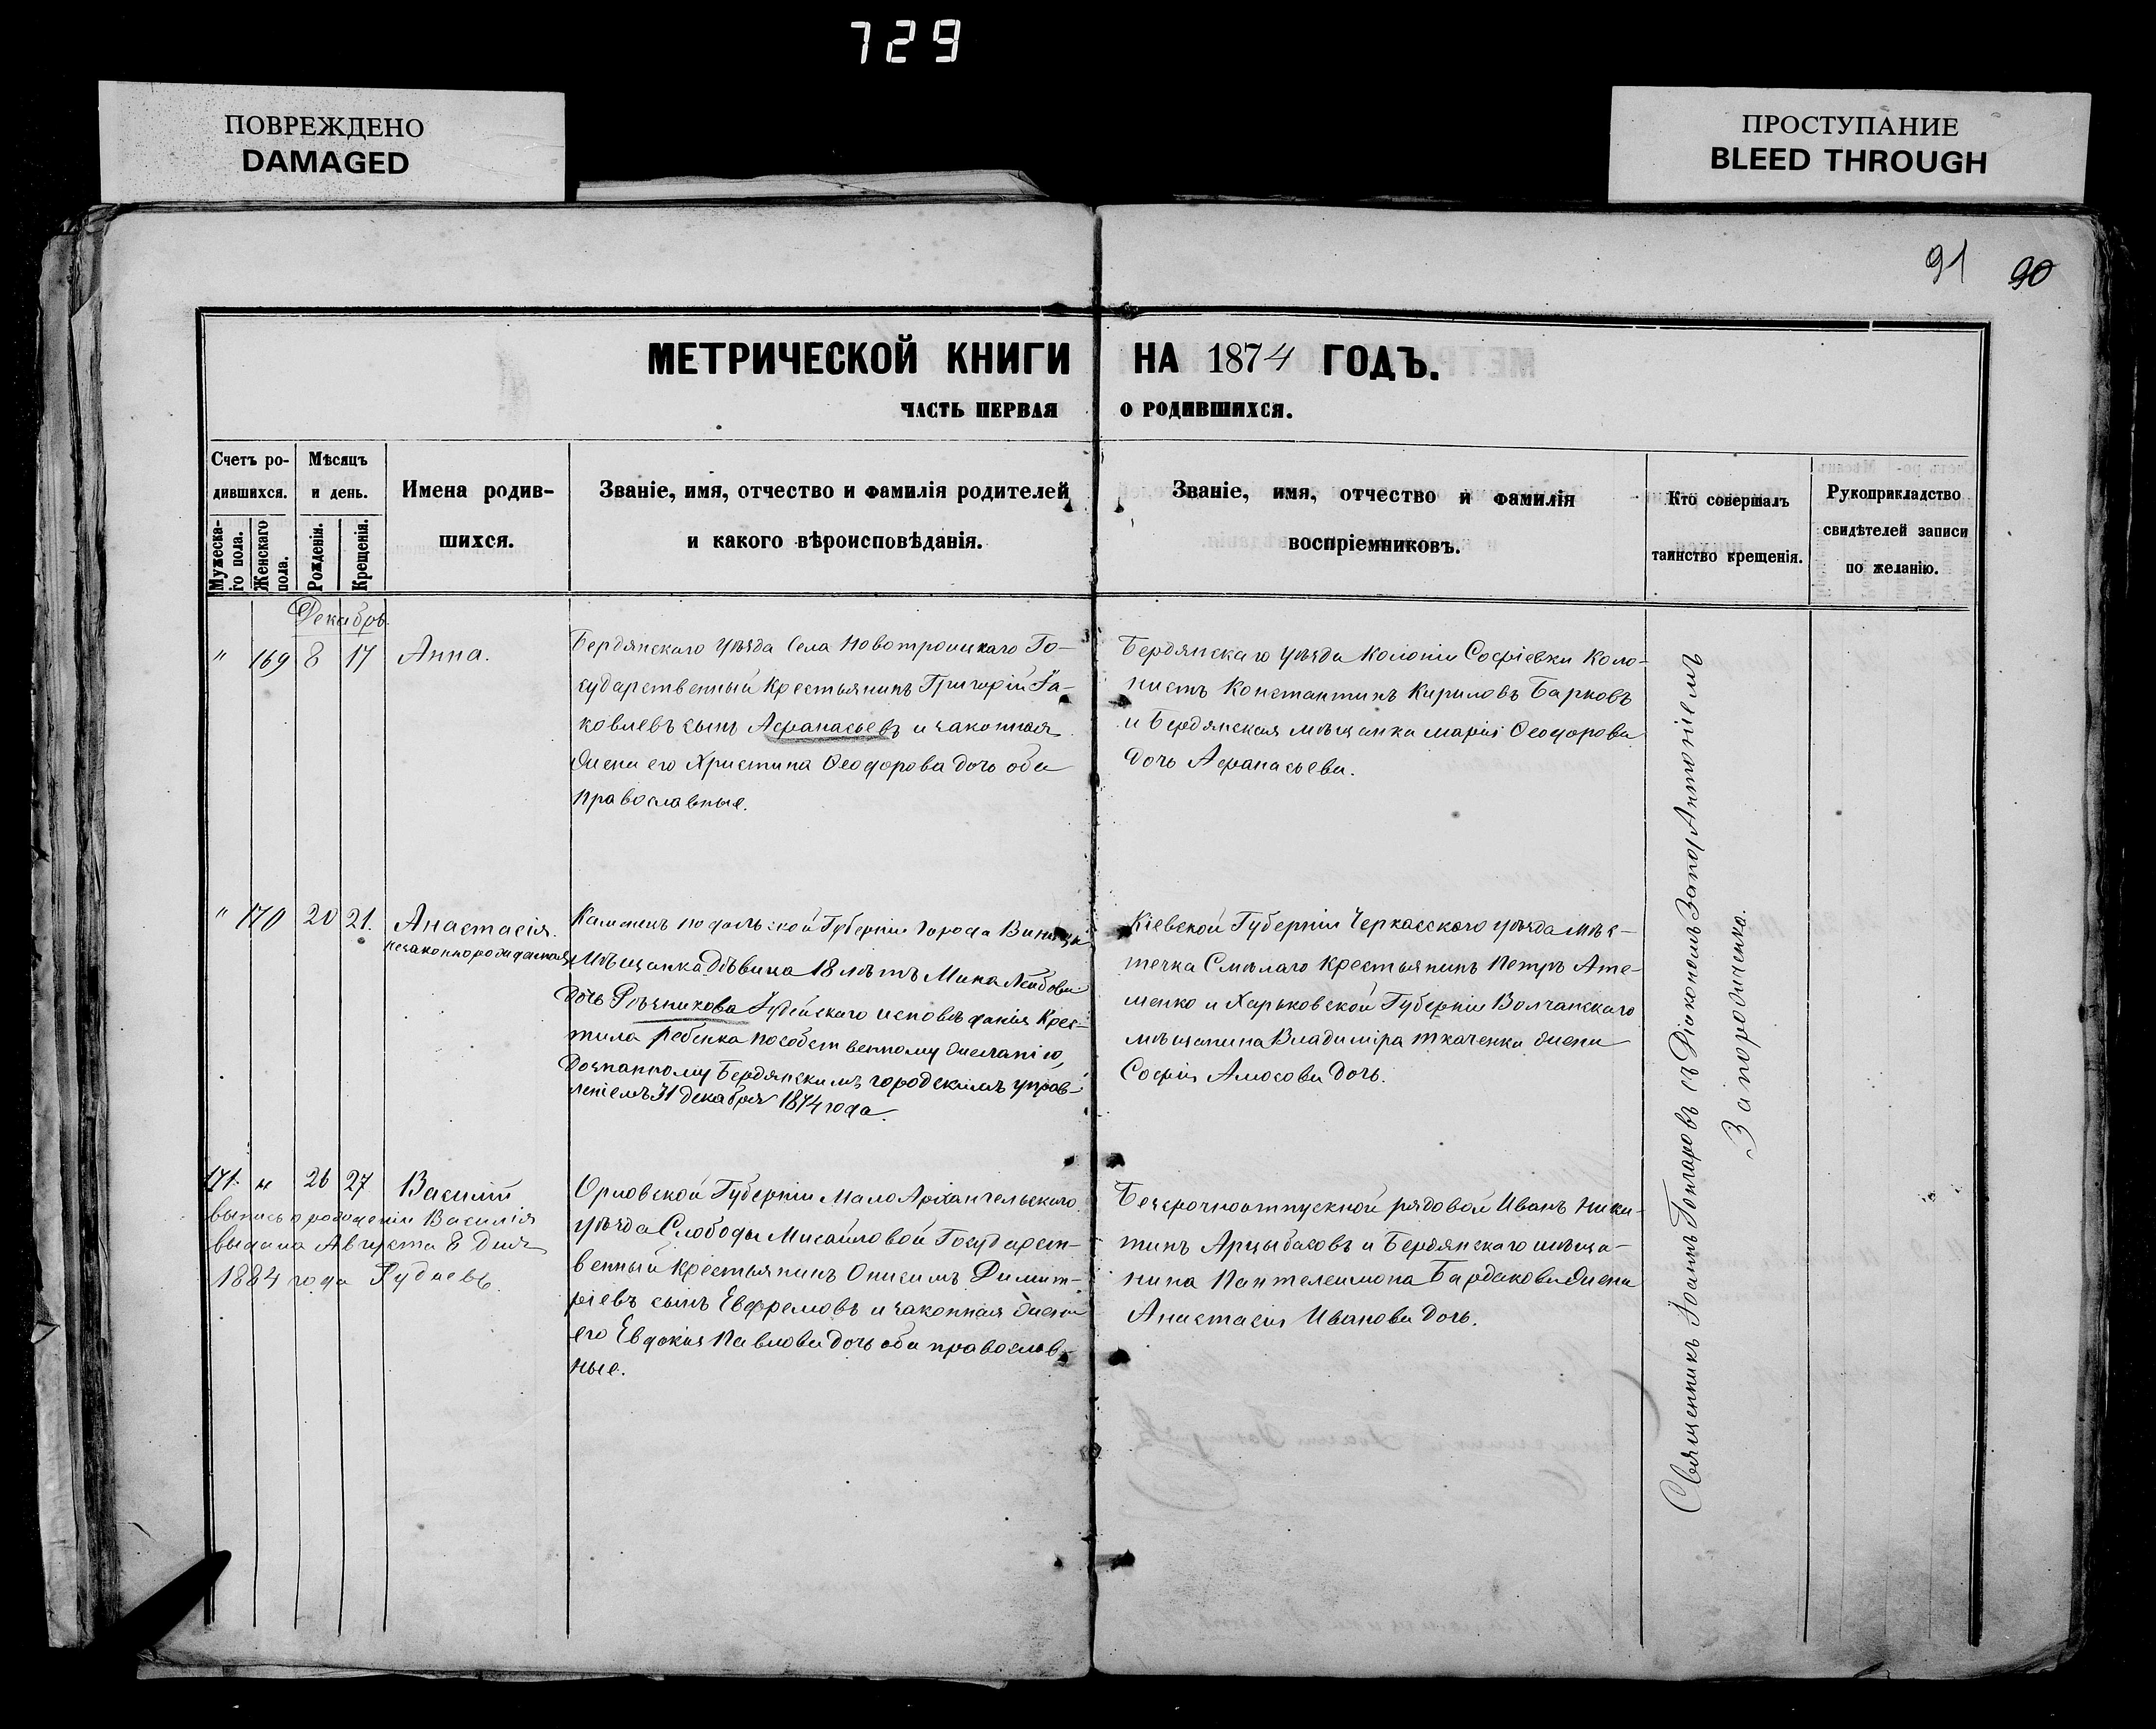 729
ПОВРЕЖДЕНО
DAMAGED
ПРОСТУПАНИЕ
BLEED THROUGH
91 90
МЕТРИЧЕСКОЙ КНИГИ НА 1874 ГОДЪ.
ЧАСТЬ ПЕРВАЯ О РОДИВШИХСЯ.
Счетъ ро-
дившихся.
Мужеска-
го пола.
Женскаго
пола.
Мѣсяцъ
и день.
Рожденія.
Крещенія.
Имена родив-
шихся.
Званіе, имя, отчество и фамилія родителей
и какого вѣроисповѣданія.
Званіе, имя, отчество и фамилія
воспріемниковъ.
Кто совершалъ
таинство крещенія.
Рукоприкладство
свидѣтелей записи
по желанію.
Декабрь
" 169 8 17 Анна.
Бердянскаго уѣзда Села Новотроицкаго Го-
сударственный Крестьянинъ Григорій Іа-
ковлевъ сынъ Афанасьевъ и законная
жена его Христина Ѳеодорова дочь оба
православные.
Бердянскаго уѣзда колоніи Софіевки Коло-
нистъ Константинъ Кириловъ Барковъ
и Бердянская мѣщанка Марія Ѳеодорова
дочь Афанасьева.
" 170 20 21. Анастасія.
незаконнорожденная
Каменецъ подольской Губерніи города Винницы
Мѣщанка Дѣвица 18 лѣтъ Мина Лейбова
дочь Рѣзникова Іудейскаго исповѣданія Крес-
тила ребенка по собственному желанію,
дознанному Бердянскимъ городскимъ управ-
леніемъ 31 декабря 1874 года.
Кіевской Губерніи Черкасскаго уѣзда мѣс-
течка Смѣлаго Крестьянинъ Петръ Ате-
менко и Харьковской Губерніи Волчанскаго
мѣщанина Владиміра Ткаченка жена
Софія Амосова дочь.
171. " 26 27 Василій
выпись о рожденіи Василія
выдана Августа 8 дня
1884 года
Орловской Губерніи Мало Архангельскаго
уѣзда Слободы Мисайловой Государст-
венный крестьянинъ Онисимъ Димит-
ріевъ сынъ Евфремовъ и законная жена
его Евдокія Павлова дочь оба православ-
ные.
Безсрочноотпускной рядовой Иванъ Ники-
тинъ Арцыбасовъ и Бердянскаго мѣща-
нина Пантелеимона Бардакова жена
Анастасія Иванова дочь.
Священникъ Іоаннъ Гончаровъ съ Діакономъ Антоніемъ
Запородченко.